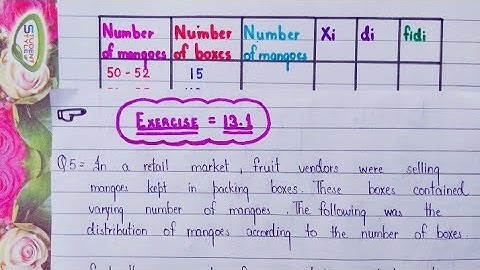 STUDENT STYLES
Number of mangoes Number of boxes Number of mangoes Xi di fidi
50 - 52 15
EXERCISE = 13.1
Q5= In a retail market, fruit vendors were selling
mangoes kept in packing boxes. These boxes contained
varying number of mangoes. The following was the
distribution of mangoes according to the number of boxes.